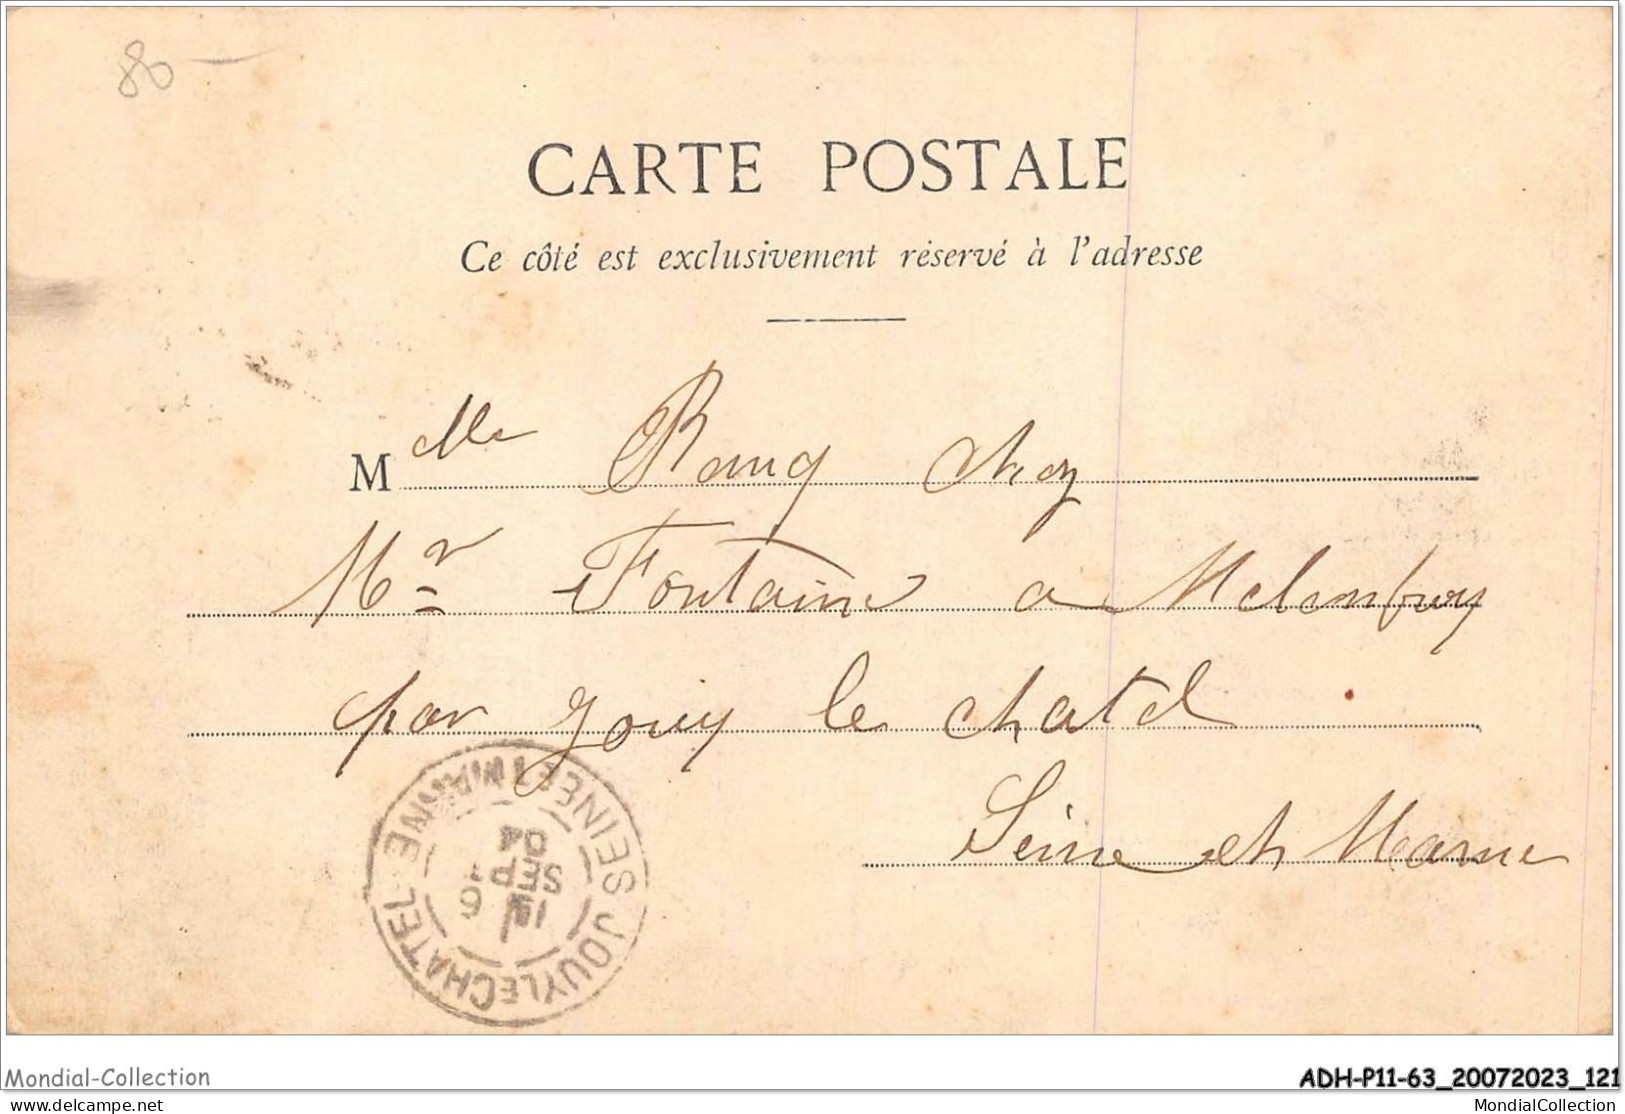 80 -
CARTE POSTALE
Ce côté est exclusivement réservé à l'adresse
Melle Rang chez
Mr Fontaine a Melenfroy
par Jouy le chatel
Seine et Marne
JOUY LE CHATEL SEINE ET MARNE
6
SEPT
04
Mondial-Collection
ADH-P11-63_20072023_121
Mondial-Collection.com
MondialCollection